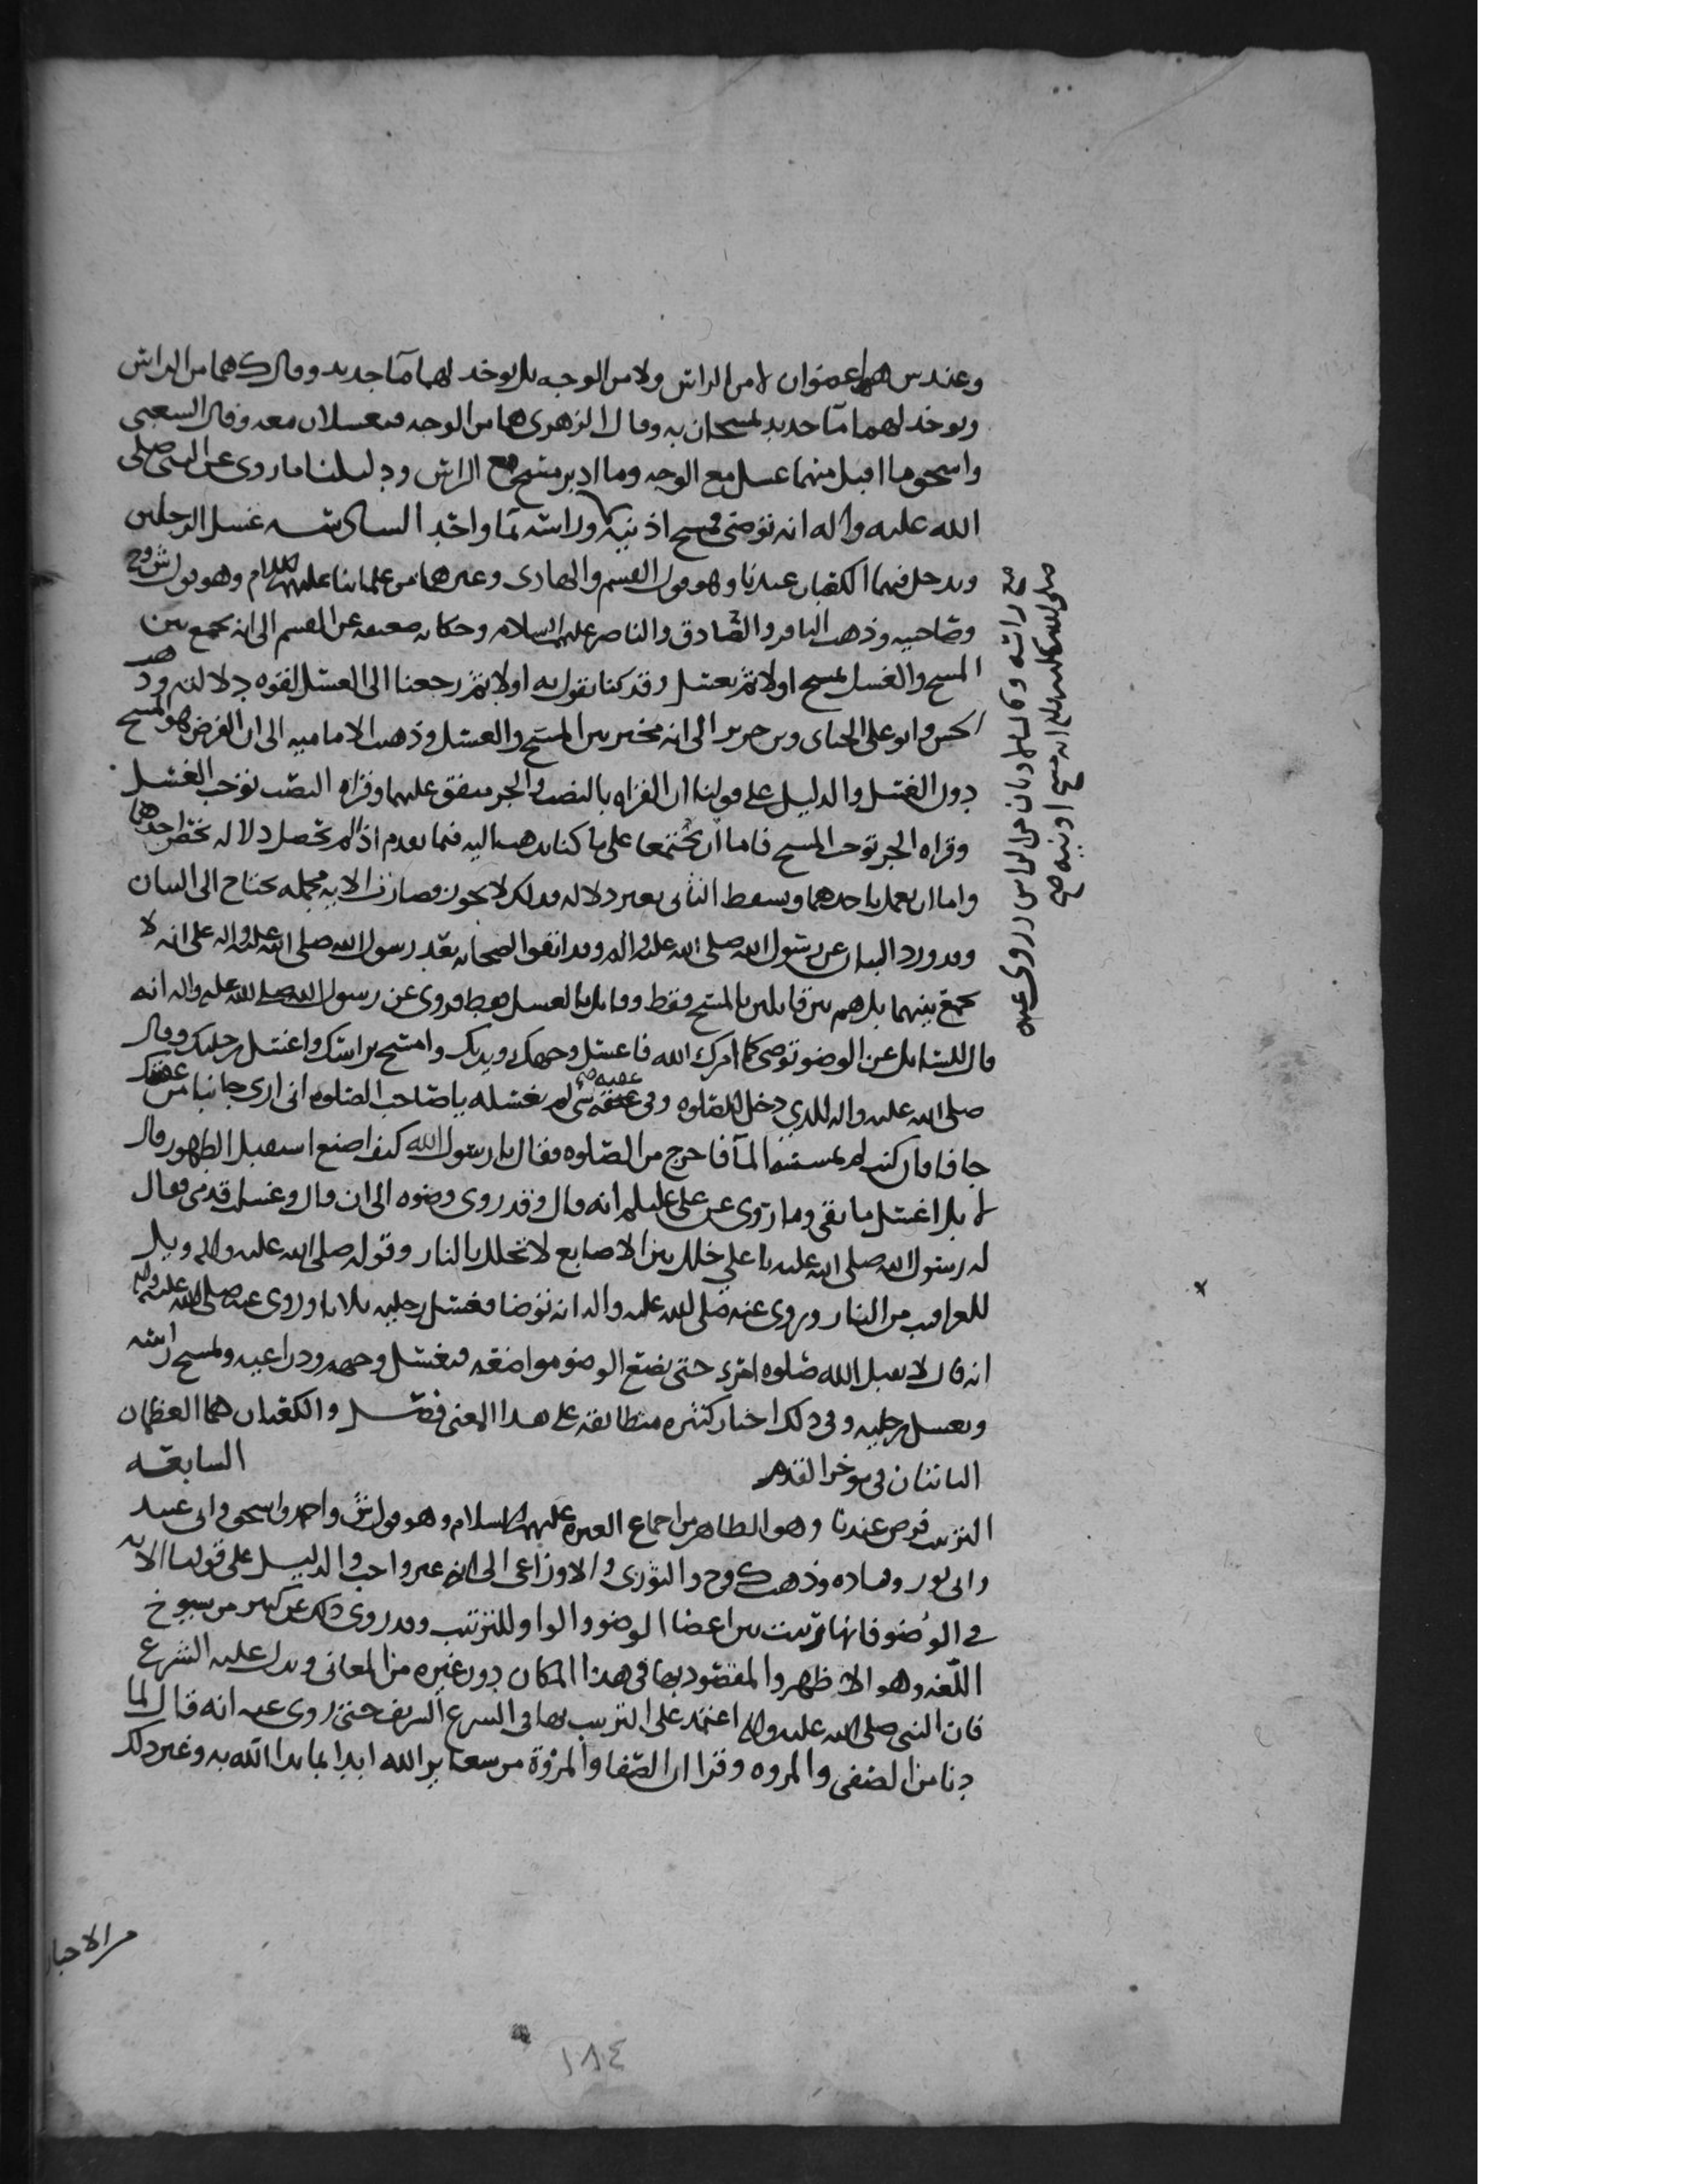 وعند ش هما عضوان لا من الراس ولا من الوجه بل يوخذ لهما مآ جديد وقال ك هما من الراس
ويوخذ لهما مآ جديد يمسحان به وقال الزهري هما من الوجه فيغسلان معه وقال الشعبي
واسحق ما اقبل منهما غسل مع الوجه وما ادبر مسح مع الراس ودليلنا ما روي عن النبي صلى
الله عليه واله انه توضى فمسح اذنيه وراسه بمآ واحد السادسه غسل الرجلين
ويدخل فيهما الكعبان عندنا وهو قول القسم والهادي وغيرهما من علمائنا عليهم السلام وهو قول ش وح
وصاحبيه وذهب الباقر والصادق والناصر عليهم السلام وحكايه ضعيفه عن القسم الى انه يجمع بين
المسح والغسل يمسح اولا ثم يغسل وقد كنا نقول به اولا ثم رجعنا الى الغسل لقوه دلالته وذهب
الحسن وابو على الجباي وبن جرير الى انه مخير بين المسح والغسل وذهب الاماميه الى ان الفرض هو المسح
دون الغسل والدليل على قولنا ان القراه بالنصب والجر متفق عليهما وقراه النصب توجب الغسل
وقراه الجر توجب المسح فاما ان يجتمعا على ما كنا نذهب اليه فيما تقدم اذ لم تحصل دلاله تخص احدهما
واما ان يعمل باحدهما ويسقط الثاني بغير دلاله فذلك لا يجوز فصارت الايه مجمله تحتاج الى البيان
وقد ورد البيان عن رسول الله صلى الله عليه واله وقد اتفق الصحابه بعد رسول الله صلى الله عليه واله على انه لا
يجمع بينهما بل هم بين قايلين بالمسح فقط وقايل بالغسل فقط فروي عن رسول الله صلى الله عليه واله انه
قال للسايل عن الوضو توضى كما امرك الله فاغسل وجهك ويديك وامسح براسك واغسل رجليك وقال
صلى الله عليه واله للذي دخل للصلوه وفي عقبه شي لم يغسله يا صاحب الصلوه اني ارى جانبا من عقبك
جافا فان كنت لم تمسسه المآ فاخرج من الصلوه فقال يا رسول الله كيف اصنع استقبل الطهور قال
لا بل اغسل ما بقي وما روي عن علي عليلم انه قال وقد روى وضوه الى ان قال وغسلت قدمي فقال
له رسول الله صلى الله عليه يا علي خلل بين الاصابع لا تخلل بالنار وقوله صلى الله عليه واله ويل
للعراقيب من النار وروي عنه صلى الله عليه واله انه توضا فغسل رجليه ثلاثا وروي عنه صلى الله عليه واله
انه قال لا يقبل الله صلوه امرء حتى يضع الوضو مواضعه فيغسل وجهه وذراعيه ويمسح راسه
ويغسل رجليه وفي ذلك اخبار كثيره متطابقه على هذا المعنى فصل والكعبان هما العظمان
الناتئان في موخر القدم السابعه
الترتيب فرض عندنا وهو الظاهر من اجماع العتره عليهم السلام وهو قول ش واحمد واسحق وابي عبيد
وابي ثور وقتاده وذهب ك وح والثوري والاوزاعي الى انه غير واجب والدليل على قولنا الايه
في الوضو فانها ترتبت بين اعضا الوضو والواو للترتيب وقد روي ذلك عن كثير من شيوخ
اللغه وهو الاظهر والمقصود بها في هذا المكان دون غيره من المعاني ويدل عليه الشرع
فان النبي صلى الله عليه واله اعتمد على الترتيب بها في الشرع الشريف حتى روي عنه انه قال لما
دنا من الصفى والمروه وقرا ان الصفا والمروة من شعاير الله ابدا بما بدا الله به وغير ذلك
من الاخبار
١٨٤